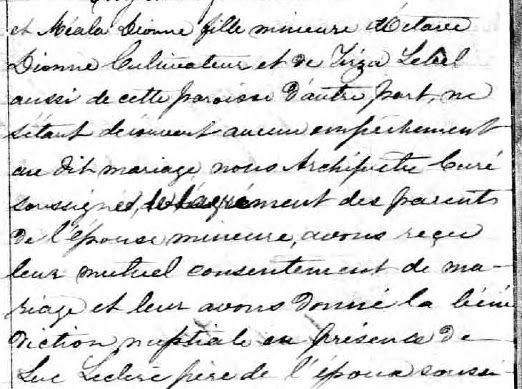 et Méala Dionne fille mineure d'Octave
Dionne Cultivateur et de Tirza Lebel
aussi de cette paroisse d'autre part, ne
s'étant découvert aucun empêchement
au dit mariage nous Archiprêtre Curé
soussigné, de l'agrément des parents
de l'épouse mineure, avons reçu
leur mutuel consentement de ma-
riage et leur avons donné la béné
diction nuptiale en présence de
Luc Leclerc père de l'époux soussi